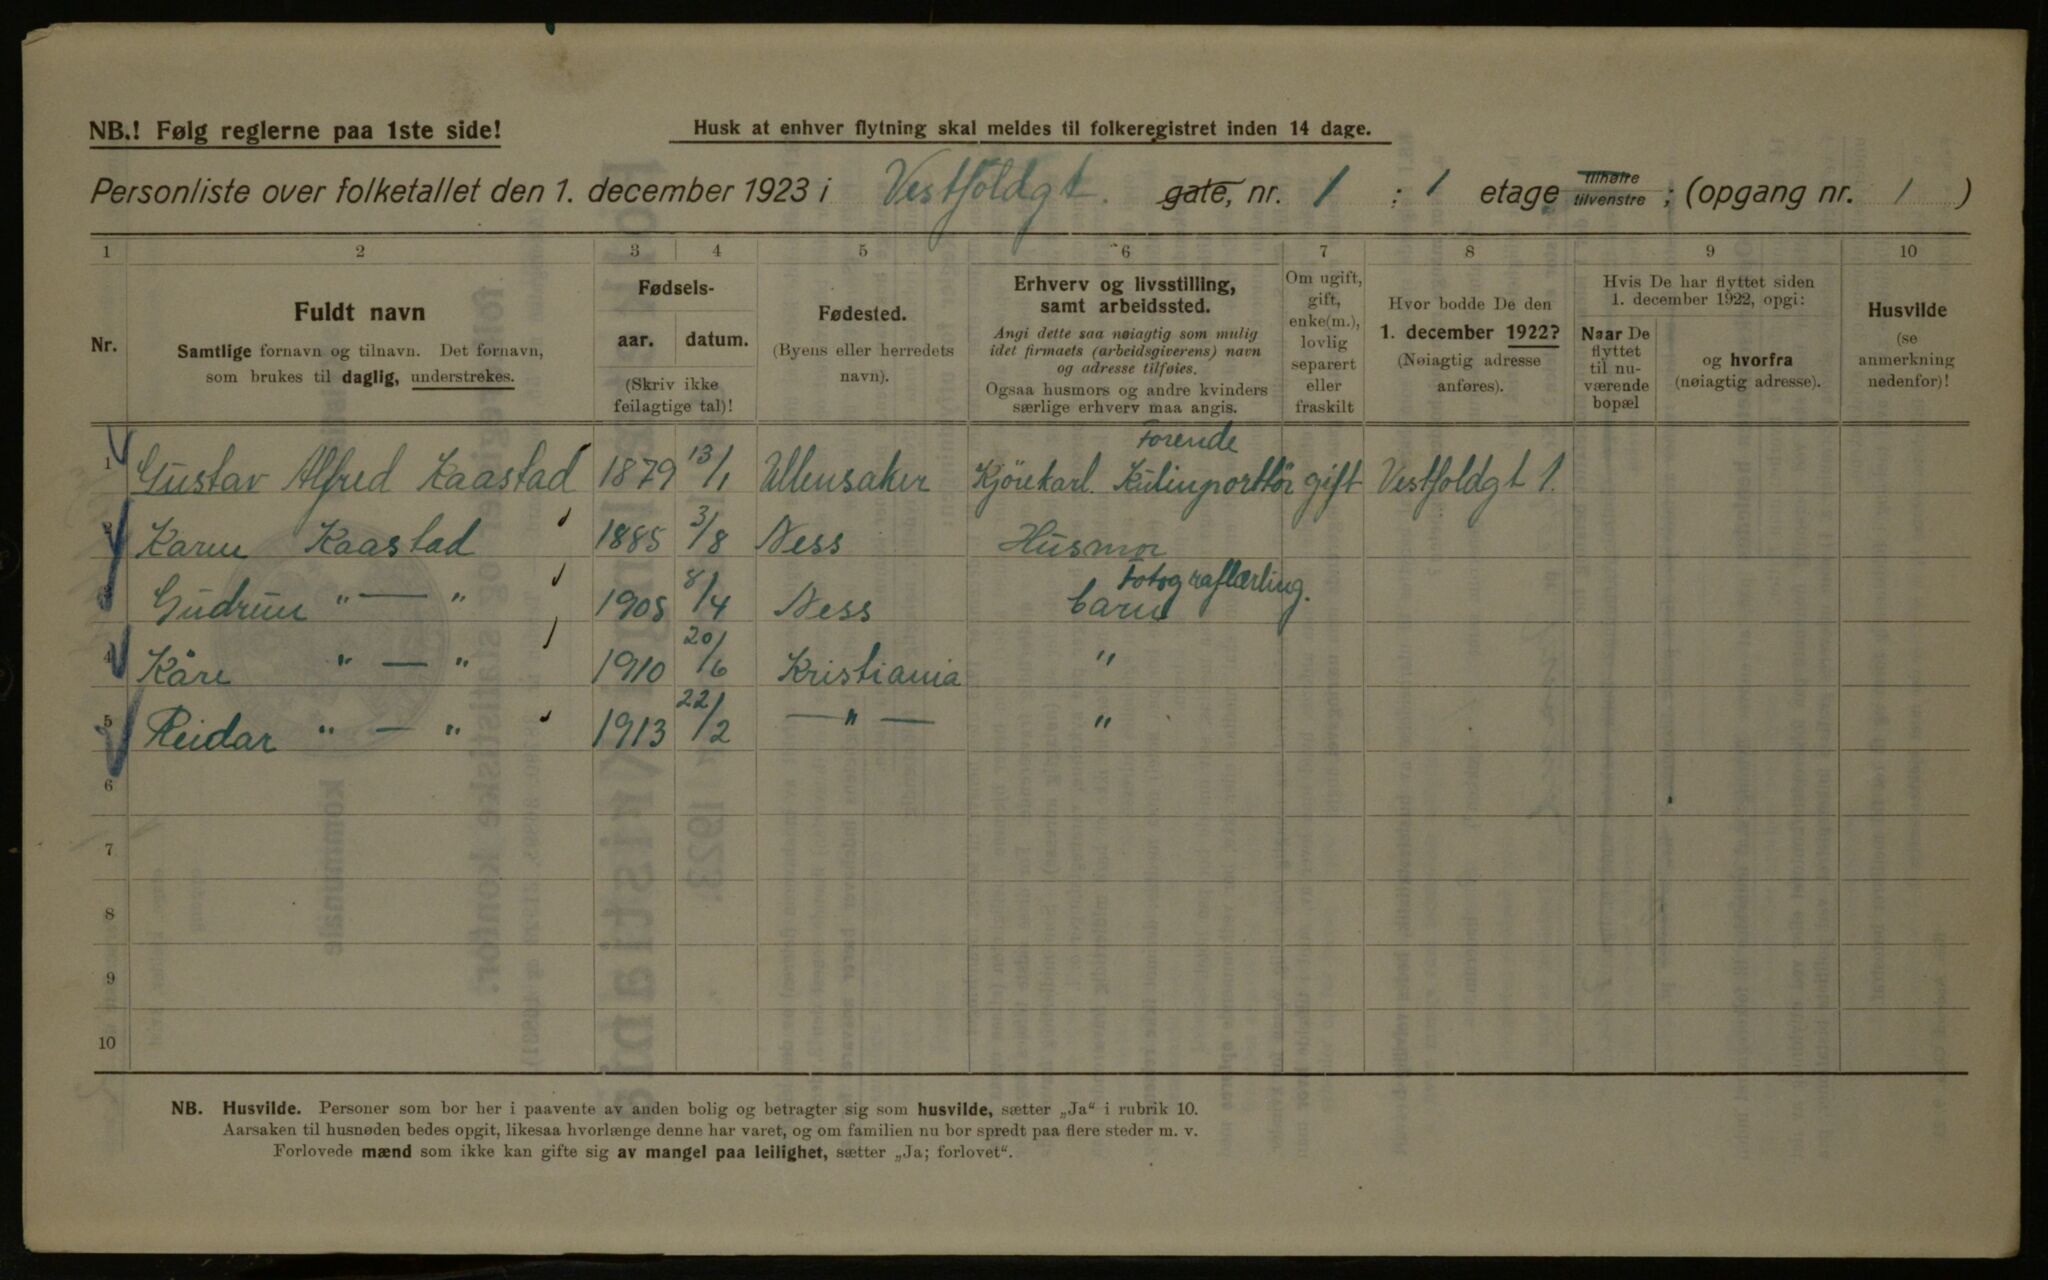 NB.! Følg reglerne paa 1ste side!
Husk at enhver flytning skal meldes til folkeregistret inden 14 dage.
Personliste over folketallet den 1. december 1923 i Vestfoldgt. gate, nr. 1 : 1 etage tilhøire tilvenstre ; (opgang nr. 1 )
1 2 3 4 5 6 7 8 9 10
Nr.
Fuldt navn
Samtlige fornavn og tilnavn. Det fornavn,
som brukes til daglig, understrekes.
Fødsels-
aar. datum.
(Skriv ikke
feilagtige tal)!
Fødested.
(Byens eller herredets
navn).
Erhverv og livsstilling,
samt arbeidssted.
Angi dette saa nøiagtig som mulig
idet firmaets (arbeidsgiverens) navn
og adresse tilføies.
Ogsaa husmors og andre kvinders
særlige erhverv maa angis.
Om ugift,
gift,
enke(m.),
lovlig
separert
eller
fraskilt
Hvor bodde De den
1. december 1922?
(Nøiagtig adresse
anføres).
Hvis De har flyttet siden
1. december 1922, opgi:
Naar De
flyttet
til nu-
værende
bopæl
og hvorfra
(nøiagtig adresse).
Husvilde
(se
anmerkning
nedenfor)!
Forende
1 Gustav Alfred Kaastad 1879 13/1 Ullensaker Kjörekarl. Kulimportör gift Vestfoldgt 1.
2 Karen Kaastad 1885 3/8 Ness Husmor
Fotograflærling.
3 Gudrun " — " 1905 8/4 Ness barn
4 Kåre " — " 1910 20/6 Kristiania "
5 Reidar " — " 1913 22/2 — " — "
6
7
8
9
10
NB. Husvilde. Personer som bor her i paavente av anden bolig og betragter sig som husvilde, sætter „Ja“ i rubrik 10.
Aarsaken til husnøden bedes opgit, likesaa hvorlænge denne har varet, og om familien nu bor spredt paa flere steder m. v.
Forlovede mænd som ikke kan gifte sig av mangel paa leilighet, sætter „Ja; forlovet“.